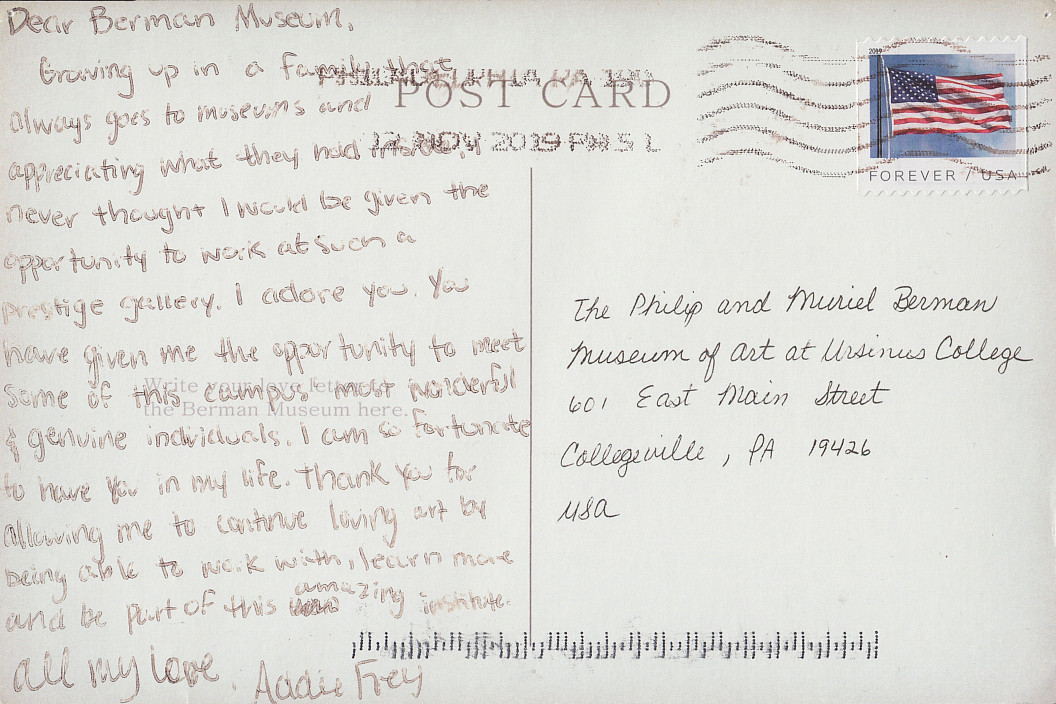 Dear Berman Museum,
Growing up in a family that
always goes to museums and
appreciating what they had inside, I
never thought I would be given the
opportunity to work at such a
prestige gallery. I adore you. You
have given me the opportunity to meet
some of this campus' most wonderful
& genuine individuals. I am so fortunate
to have you in my life. Thank you for
allowing me to continue loving art by
being able to work with, learn more
and be part of this amazing institute.
all my love,
Frey
Write your love letter to
the Berman Museum here.
POST CARD
PHILADELPHIA PA 190
12 NOV 2019 PM 5 L
2019
FOREVER / USA
The Philip and Muriel Berman
Museum of Art at Ursinus College
601 East Main Street
Collegeville, PA 19426
USA